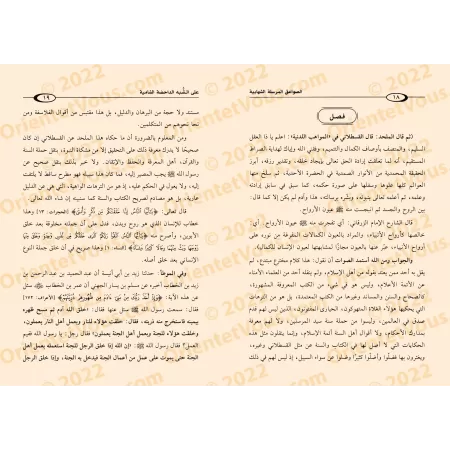 ١٨ الصواعق المرسلة الشهابية
فصل
(ثم قال الملحد: قال القسطلاني في «المواهب اللدنية»: اعلم يا ذا العقل
السليم، والمتصف بأوصاف الكمال والتتميم، وفقني الله وإياك لهداية الصراط
المستقيم، أنه لما تعلقت إرادة الحق تعالى بإيجاد خلقه، وتقدير رزقه، أبرز
الحقيقة المحمدية من الأنوار الصمدية في الحضرة الأحدية، ثم سلخ منها
العوالم كلها علوها وسفلها على صورة حكمه، كما سبق في سابق إرادته
وعلمه، ثم أعلمه تعالى بنبوته، وبشره برسالته، هذا وآدم لم يكن إلا كما قال:
بين الروح والجسد ثم انبجست منه ﷺ عيون الأرواح.
قال الشارح الإمام الزرقاني: أي تفجرت منه ﷺ عيون الأرواح. أي
خالصها كأرواح الأنبياء، والمراد بالعيون الكمالات المفرغة من نوره على
أرواح الأنبياء، عبّر عنها بالعيون مجازًا لمشابهتها لعيون الإنسان للكمالية).
والجواب ومن الله أستمد الصواب أن نقول: هذا كلام مخترع مبتدع، لم
يقل به أحد ممن يعتد بقوله من أهل الإسلام، ولم ينقله أحد من العلماء الأمناء،
عن الأئمة الأعلام، وليس هو في شيء من الكتب المعروفة المشهورة،
كالصحاح والسنن والمساند وغيرها من الكتب المعتمدة، بل هو من الترهات
التي يحكيها هؤلاء الغلاة المتهوكون، الحيارى المفتونون، الذين ليس لهم قدم
صدق في العالمين، وليسوا من حملة سنة سيد المرسلين، ولا لهم معرفة
بمدارك الأحكام، ولا أقوال أهل السنة أئمة الإسلام، وإنما ينقلون مثل هذه
الحكايات التي لا أصل لها في الكتاب والسنة عن مثل القسطلاني وغيره،
ويغترون بها فضلوا وأضلوا كثيرًا وضلوا عن سواء السبيل، إذ ليس لهم في ذلك
على الشُّبه الداحضة الشامية ١٩
مستند ولا حجة من البرهان والدليل، بل هذا مقتبس من أقوال الفلاسفة ومن
نحا نحوهم من المتكلمين.
ومن المعلوم بالضرورة أن ما حكاه هذا الملحد عن القسطلاني إن كان
صحيحًا لا يدرك معرفة ذلك على التحقيق إلا عن مشكاة النبوة، بنقل حملة السنة
والقرآن، أهل المعرفة والحفظ والإتقان. ولا خبر بذلك ينقل صحيح عن
رسول الله ﷺ يجب المصير إليه، فما كان هذا سبيله فهو مطرح ساقط لا يلتفت
إليه، ولا يعول في الحكم عليه، إذ هو من الترهات الواهية، التي هي عن الدليل
عارية، بل هو مصادم لصريح الكتاب والسنة كما سنبينه إن شاء الله تعالى.
قال تعالى: ﴿يَا أَيُّهَا النَّاسُ إِنَّا خَلَقْنَاكُم مِّن ذَكَرٍ وَأُنثَىٰ﴾ [الحجرات: ١٣] وهذا
خطاب للإنسان الذي هو روح وبدن، فدل على أن جملته مخلوقة بعد خلق
الأبوين، وأصرح منه ﴿يَا أَيُّهَا النَّاسُ اتَّقُوا رَبَّكُمُ الَّذِي خَلَقَكُم مِّن نَّفْسٍ وَاحِدَةٍ وَخَلَقَ مِنْهَا
زَوْجَهَا وَبَثَّ مِنْهُمَا رِجَالًا كَثِيرًا وَنِسَاءً﴾ [النساء: ١] وهذا صريح في أن خلق جملة النوع
الإنساني بعد خلق أصله.
وفي الموطأ: حدثنا زيد بن أبي أنيسة أن عبد الحميد بن عبد الرحمن بن
زيد بن الخطاب أخبره عن مسلم بن يسار الجهني أن عمر بن الخطاب ﷺ سئل
عن هذه الآية: ﴿وَإِذْ أَخَذَ رَبُّكَ مِن بَنِي آدَمَ مِن ظُهُورِهِمْ ذُرِّيَّتَهُمْ﴾ [الأعراف: ١٧٢]
فقال: سمعت رسول الله ﷺ سئل عنها فقال: «خلق الله آدم ثم مسح ظهره
بيمينه فاستخرج منه ذريته، فقال: خلقت هؤلاء للنار وبعمل أهل النار يعملون،
وخلقت هؤلاء للجنة وبعمل أهل الجنة يعملون» فقال رجل: يا رسول الله ففيم
العمل؟ فقال رسول الله ﷺ: «إن الله إذا خلق الرجل للجنة استعمله بعمل أهل
الجنة حتى يموت على عمل من أعمال الجنة فيدخله به الجنة، وإذا خلق الرجل
© 2022
OrientetVenus.com